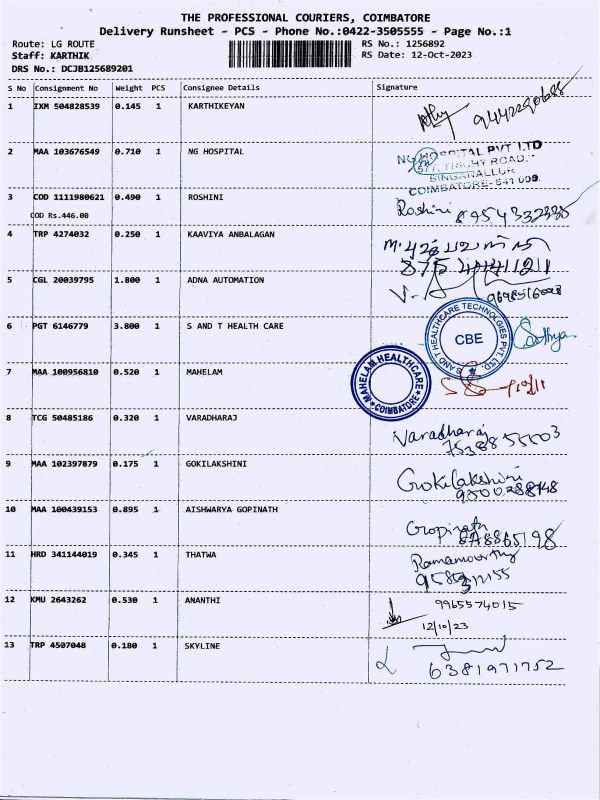 THE PROFESSIONAL COURIERS, COIMBATORE
Delivery Runsheet - PCS - Phone No.:0422-3505555 - Page No.:1
Route: LG ROUTE RS No.: 1256892
Staff: KARTHIK RS Date: 12-Oct-2023
DRS No.: DCJB125689201
S No Consignment No Weight PCS Consignee Details Signature
1 IXM 504828539 0.145 1 KARTHIKEYAN
2 MAA 103676549 0.710 1 NG HOSPITAL
NG HOSPITAL PVT LTD
577, TRICHY ROAD,
SINGANALLUR
COIMBATORE- 641 005.
3 COD 1111980621 0.490 1 ROSHINI Roshini
COD Rs.446.00
4 TRP 4274032 0.250 1 KAAVIYA ANBALAGAN
5 CGL 20039795 1.800 1 ADNA AUTOMATION
6 PGT 6146779 3.800 1 S AND T HEALTH CARE
S AND T HEALTHCARE TECHNOLGIES PVT. LTD.
CBE
Sathya
7 MAA 100956810 0.520 1 MAHELAM
MAHELAM HEALTHCARE
COIMBATORE
8 TCG 50485186 0.320 1 VARADHARAJ Varadharaj
9 MAA 102397879 0.175 1 GOKILAKSHINI Gokilakshini
10 MAA 100439153 0.895 1 AISHWARYA GOPINATH Gopinath
11 HRD 341144019 0.345 1 THATWA Ramamoorthy
12 KMU 2643262 0.530 1 ANANTHI 9965574015
12/10/23
13 TRP 4507048 0.180 1 SKYLINE
6381971752